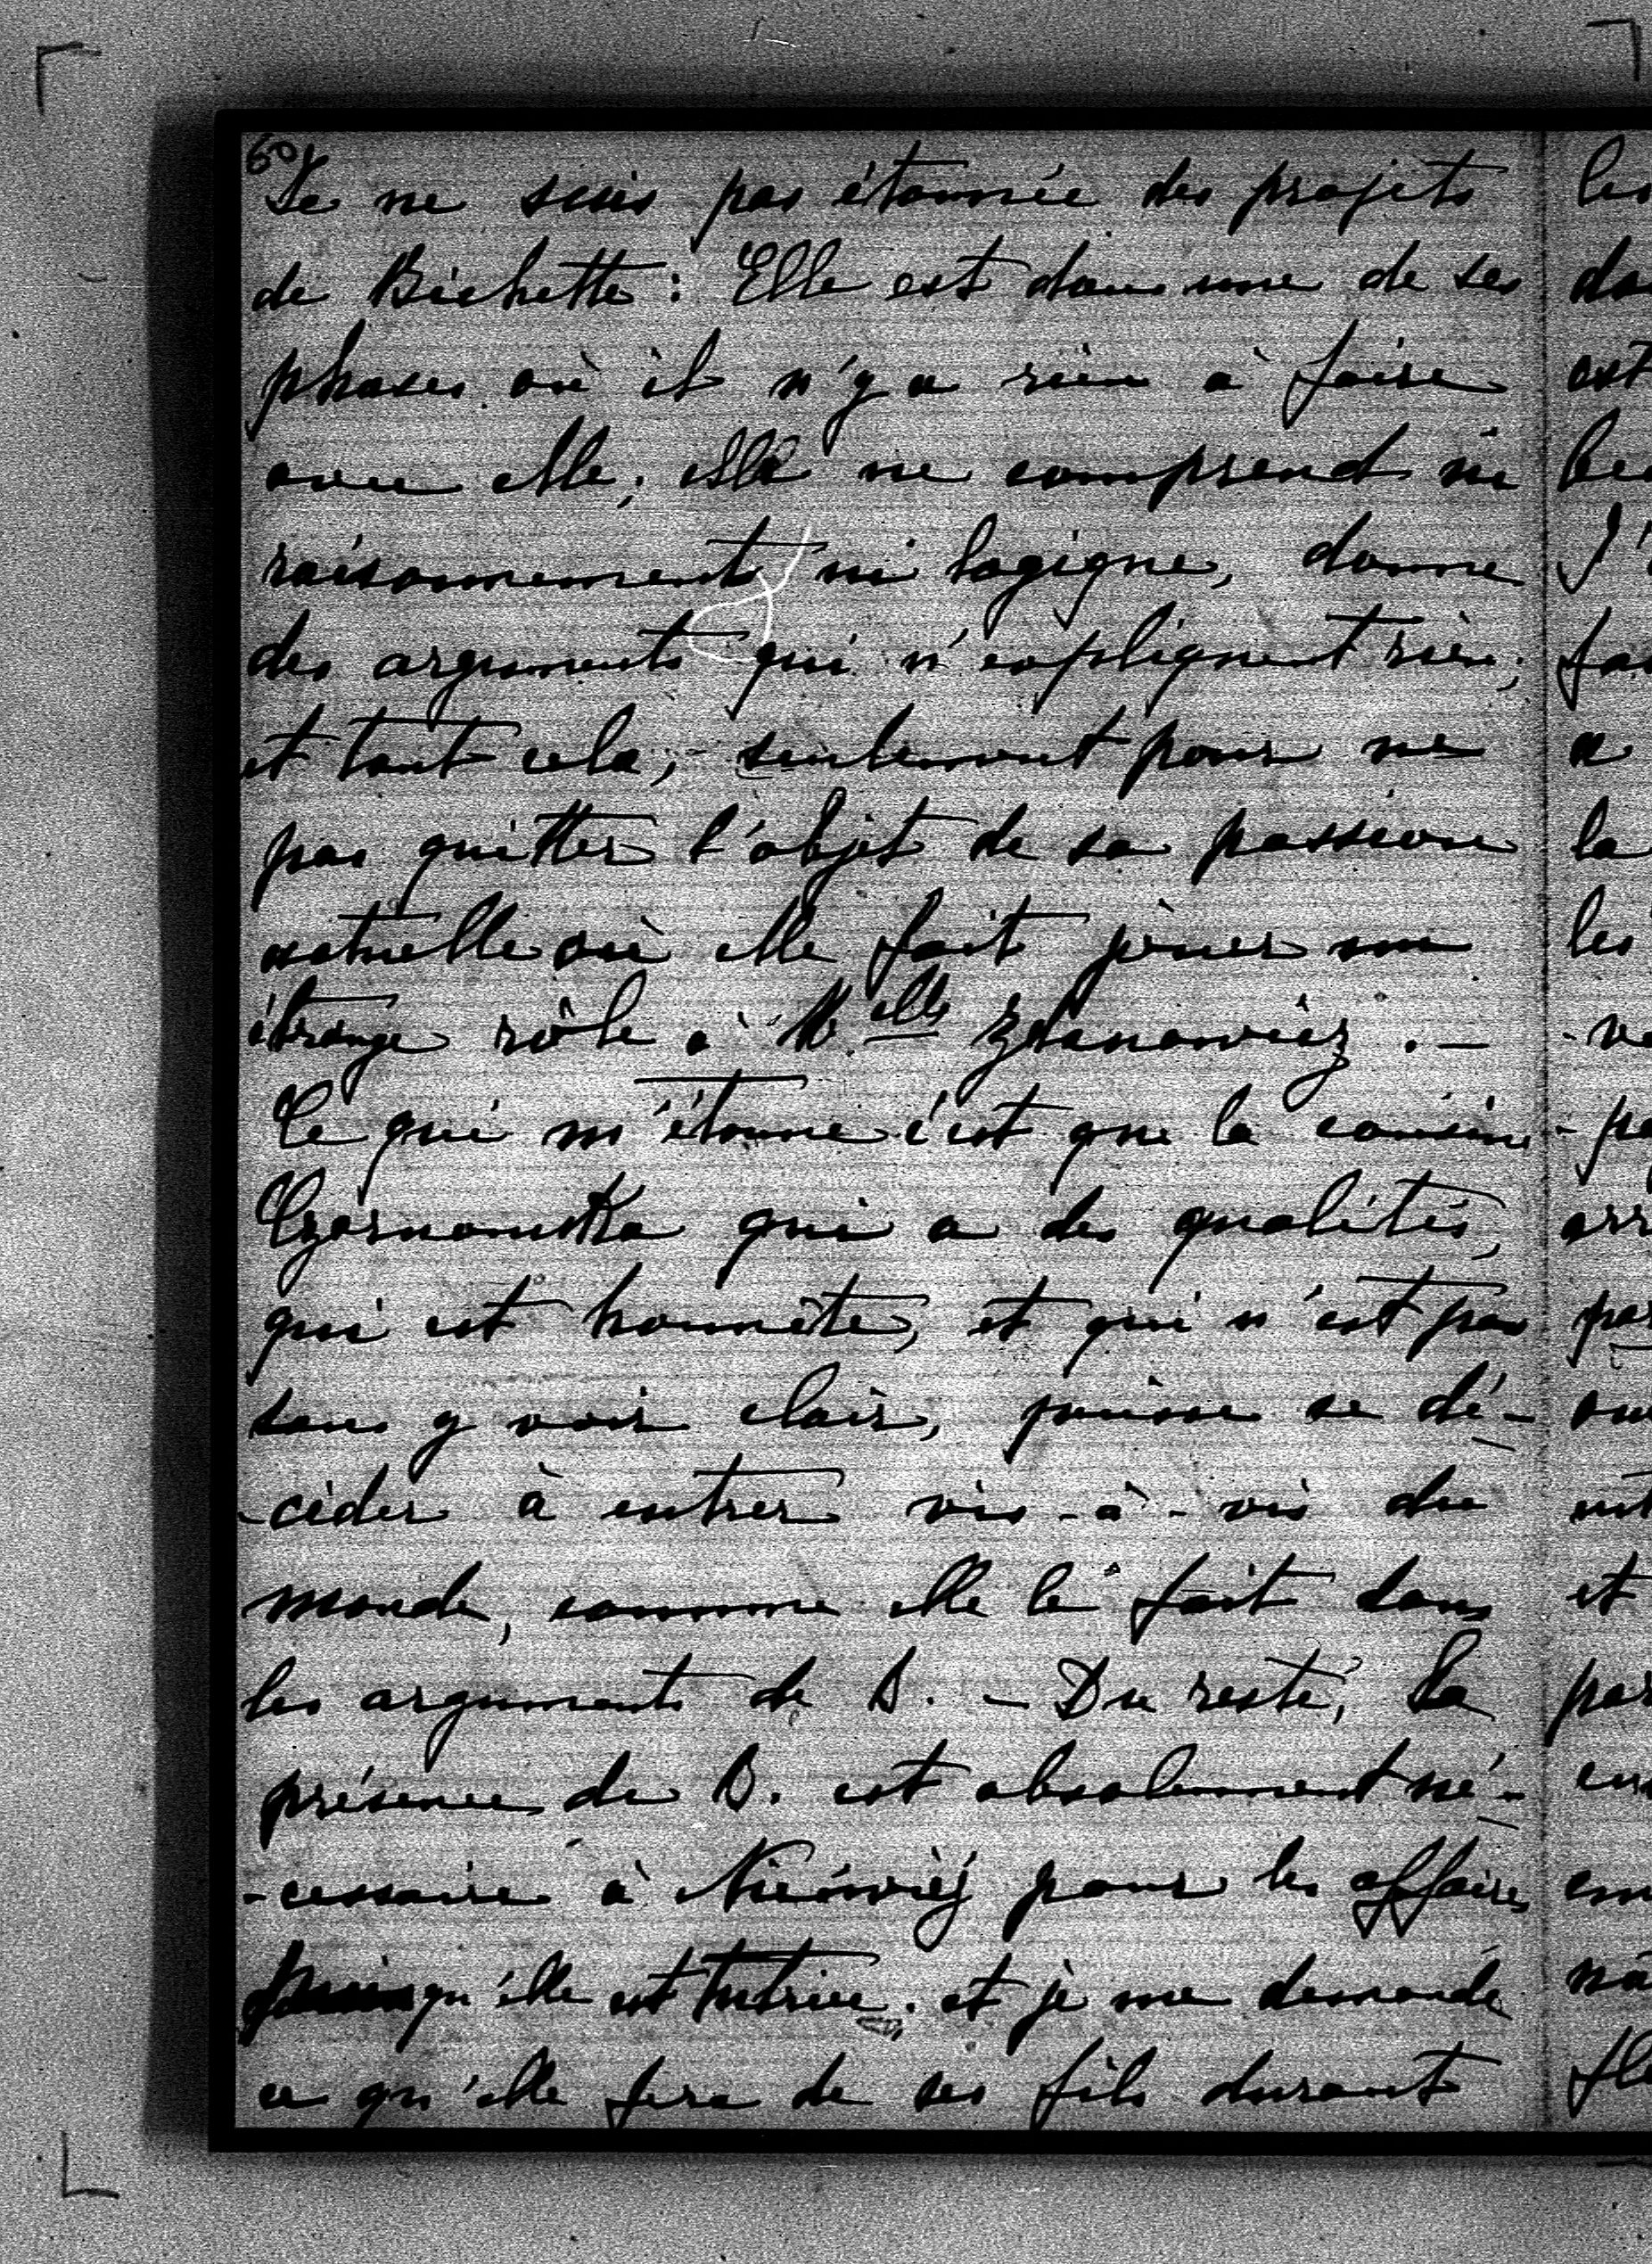 60
Je ne suis pas étonnée des projets
de Bichette: Elle est dans une de ses
phases où il n'y a rien à faire
avec elle; elle ne comprend ni
raisonnement ni logique, donne
des arguments qui n'expliquent rien;
et tout cela, seulement pour ne
pas quitter l'objet de sa passion
actuelle où elle fait jouer un
étrange rôle à M.elle Zdanowicz. –
Ce qui m'étonne c'est que la cousine
Czosnowska qui a des qualités,
qui est honnête, et qui n'est pas
sans y voir clair, puisse se dé-
-cider à entrer vis-à-vis du
monde, comme elle le fait dans
les arguments de B. – Du reste, la
présence de B. est absolument né-
-cessaire à Nieśwież pour les affaires
puisqu'elle est tutrice. et je me demande
ce qu'elle fera de ses fils durant